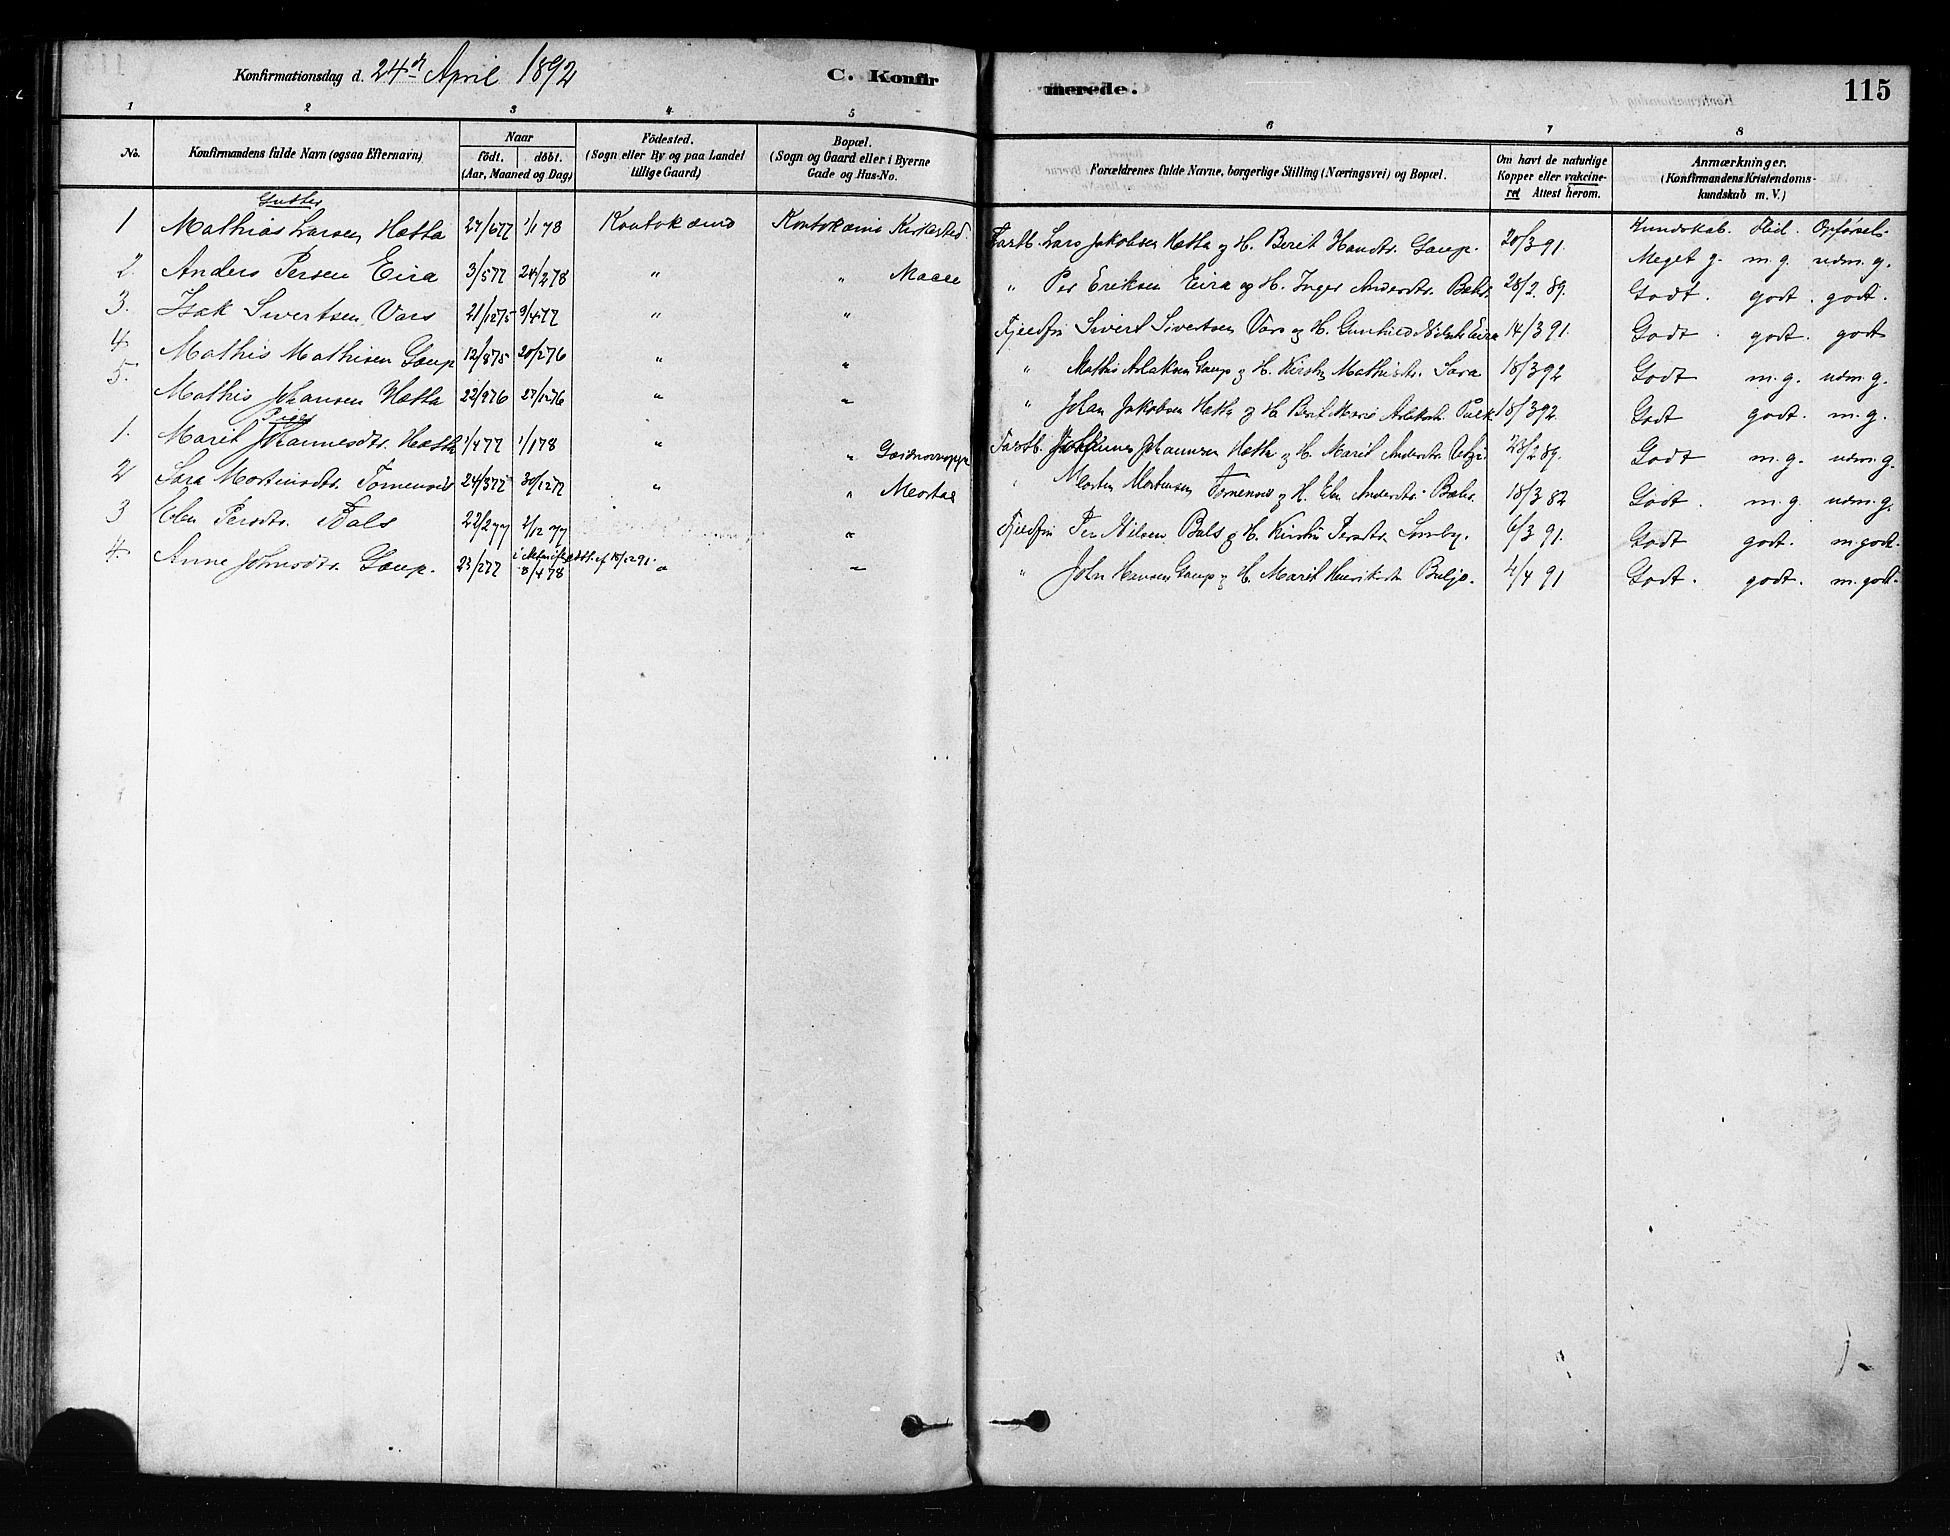 Konfirmationsdag d. 24de April 1892
C. Konfirmerede.
115
1 2 3 4 5 6 7 8
No.
Konfirmandens fulde Navn (ogsaa Efternavn)
Naar
födt. döbt.
(Aar, Maaned og Dag)
Födested.
(Sogn eller By og paa Landet
tillige Gaard)
Bopæl.
(Sogn og Gaard eller i Byerne
Gade og Hus-No.
Forældrenes fulde Navne, borgerlige Stilling (Næringsvei) og Bopæl.
Om havt de naturlige
Kopper eller vakcine-
ret Attest herom.
Anmærkninger.
(Konfirmandens Kristendoms-
kundskab m. V.)
Gutter
Kundskab. Flid. Opførsel.
1 Mathias Larsen Hætta 27/6 77 1/1 78 Koutokæino Koutokæino Kirkested. Fastb. Lars Jakobsen Hætta og H. Berit Hansdtr. Gaup. 20/3 91. Meget g. m. g. udm. g.
2. Anders Persen Eira 3/5 77 24/2 78 " " Maace " Per Eriksen Eira og H. Inger Andersdtr. Bæhr. 28/2 89. Godt. godt. godt.
3. Isak Sivertsen Vars 21/12 75 9/4 77 " " Fjeldfin Sivert Sivertsen Vars og H. Gunhild Nilsdtr Eira 14/3 91. Godt godt. godt
4. Mathis Mathisen Gaup 12/8 75 20/2 76 " " " Mathis Aslaksen Gaup og H. Kirsten Mathisdtr. Sara 18/3 92 Godt m. g. udm. g.
5. Mathis Johansen Hætta 22/9 76 27/12 76 " " " Johan Jakobsen Hætta og H. Berit Marie Aslaksdtr. 18/3 92. Godt godt. m. g.
Piger
1. Marit Johannesdtr. Hætta 1/4 77 1/1 78 " " Fastb. Johannes Johannsen Hætta og H. Marit Andersdtr. 28/2 89. Godt m. g. udm. g.
2 Sara Mortensdtr. Tornensis 24/3 77 30/12 77 " " Mortas " Morten Mortensen Tornensis og H. Elen Andersdtr. Bæhr. 18/3 82 Godt. m. g. udm. g.
3 Elen Persdtr. Bals 22/2 77 2/12 77 " Fjeldfin Per Nilsen Bals og H. Kirstin Persdtr. Somby. 6/3 91. Godt godt. m. godt.
4. Anne Johnsdtr. Gaup. 23/2 77 8/4 78 " " " John Hansen Gaup og H. Marit Henriksdtr Buljo. 4/4 91 Godt. godt. m. godt.